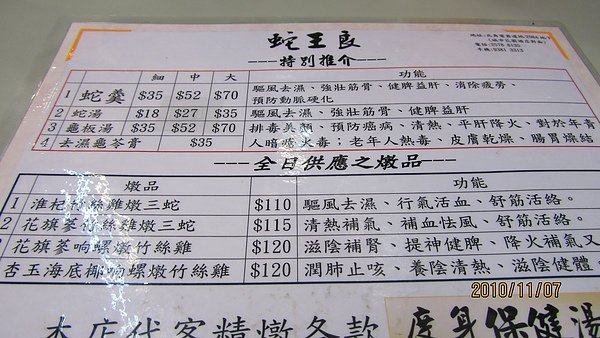 蛇王良
---特別推介---
細 中 大 功能
1 蛇羹 $35 $52 $70 驅風去濕、強壯筋骨、健脾益肝、消除疲勞、
預防動脈硬化
2 蛇湯 $18 $27 $35 驅風去濕、強壯筋骨、健脾益肝
3 龜板湯 $35 $52 $70 排毒美顏、預防癌病、清熱、平肝降火、對於年青
4 去濕龜苓膏 $35 人暗瘡火毒；老年人熱毒、皮膚乾燥、腸胃燥結
---全日供應之燉品---
燉品 功能
1 淮杞竹絲雞燉三蛇 $110 驅風去濕、行氣活血、舒筋活絡。
2 花旗蔘竹絲雞燉三蛇 $115 清熱補氣、補血怯風、舒筋活絡。
花旗蔘响螺燉竹絲雞 $120 滋陰補腎、提神健脾、降火補氣又
杏玉海底椰响螺燉竹絲雞 $120 潤肺止咳、養陰清熱、滋陰健體
本店代客精燉各款 度身保健湯
2010/11/07